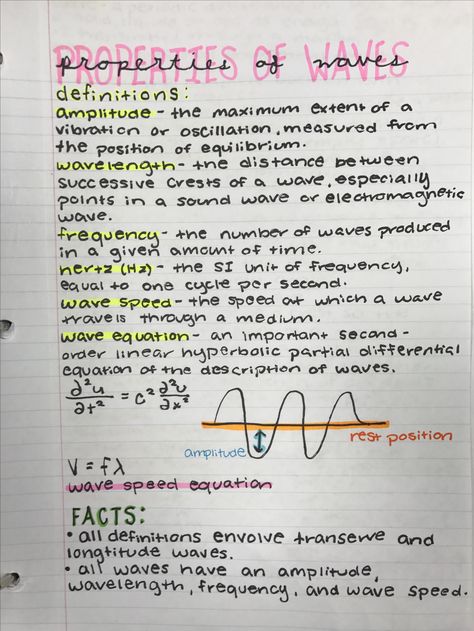 PROPERTIES OF WAVES
properties of waves
definitions:
amplitude - the maximum extent of a
vibration or oscillation, measured from
the position of equilibrium.
wavelength - the distance between
successive crests of a wave, especially
points in a sound wave or electromagnetic
wave.
frequency - the number of waves produced
in a given amount of time.
hertz (Hz) - the SI unit of frequency,
equal to one cycle per second.
wave speed - the speed at which a wave
travels through a medium.
wave equation - an important second-
order linear hyperbolic partial differential
equation of the description of waves.
∂²u/∂t² = c² ∂²u/∂x²
amplitude
rest position
V = fλ
wave speed equation
FACTS:
• all definitions envolve transerve and
longtitude waves.
• all waves have an amplitude,
wavelength, frequency, and wave speed.